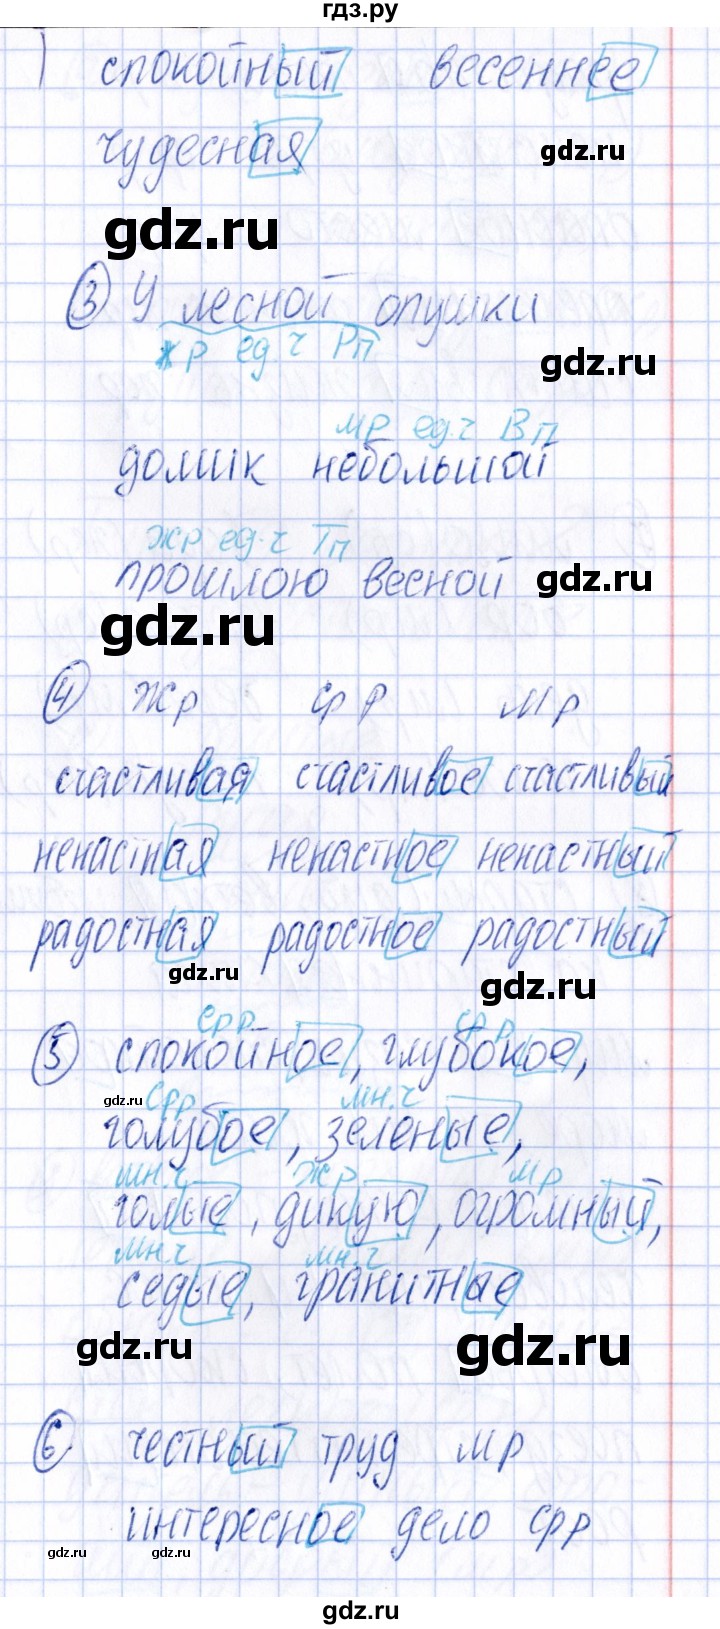 гдз.ру
1 спокойный весеннее
чудесная
gdz.ru
gdz.ru
3 У лесной опушки
жр ед.ч Рп
gdz.ru
мр ед.ч Вп
домик небольшой
жр ед.ч Тп
прошлою весной
gdz.ru
gdz.ru
4 жр ср р мр
счастливая счастливое счастливый
ненастная ненастное ненастный
радостная радостное радостный
gdz.ru
gdz.ru
ср р ср р
5 спокойное, глубокое,
gdz.ru
срр мн.ч
голубое, зеленые,
мн.ч жр мр
голые, дикую, огромный,
мн.ч мн.ч
седые, гранитные
gdz.ru
gdz.ru
6 честный труд мр
интересное дело срр
gdz.ru gdz.ru gdz.ru
gdz.ru